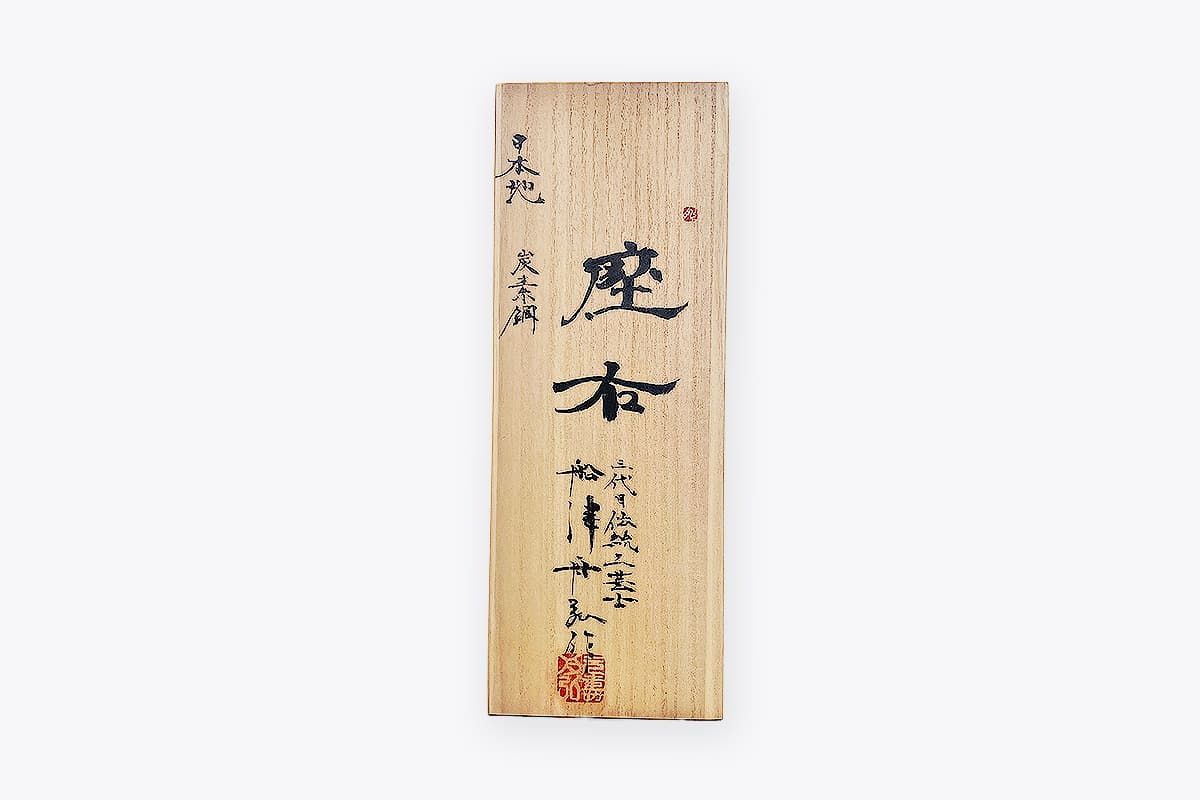 座右
三代目伝統工芸士
船津舟弘作
日本地
炭素鋼